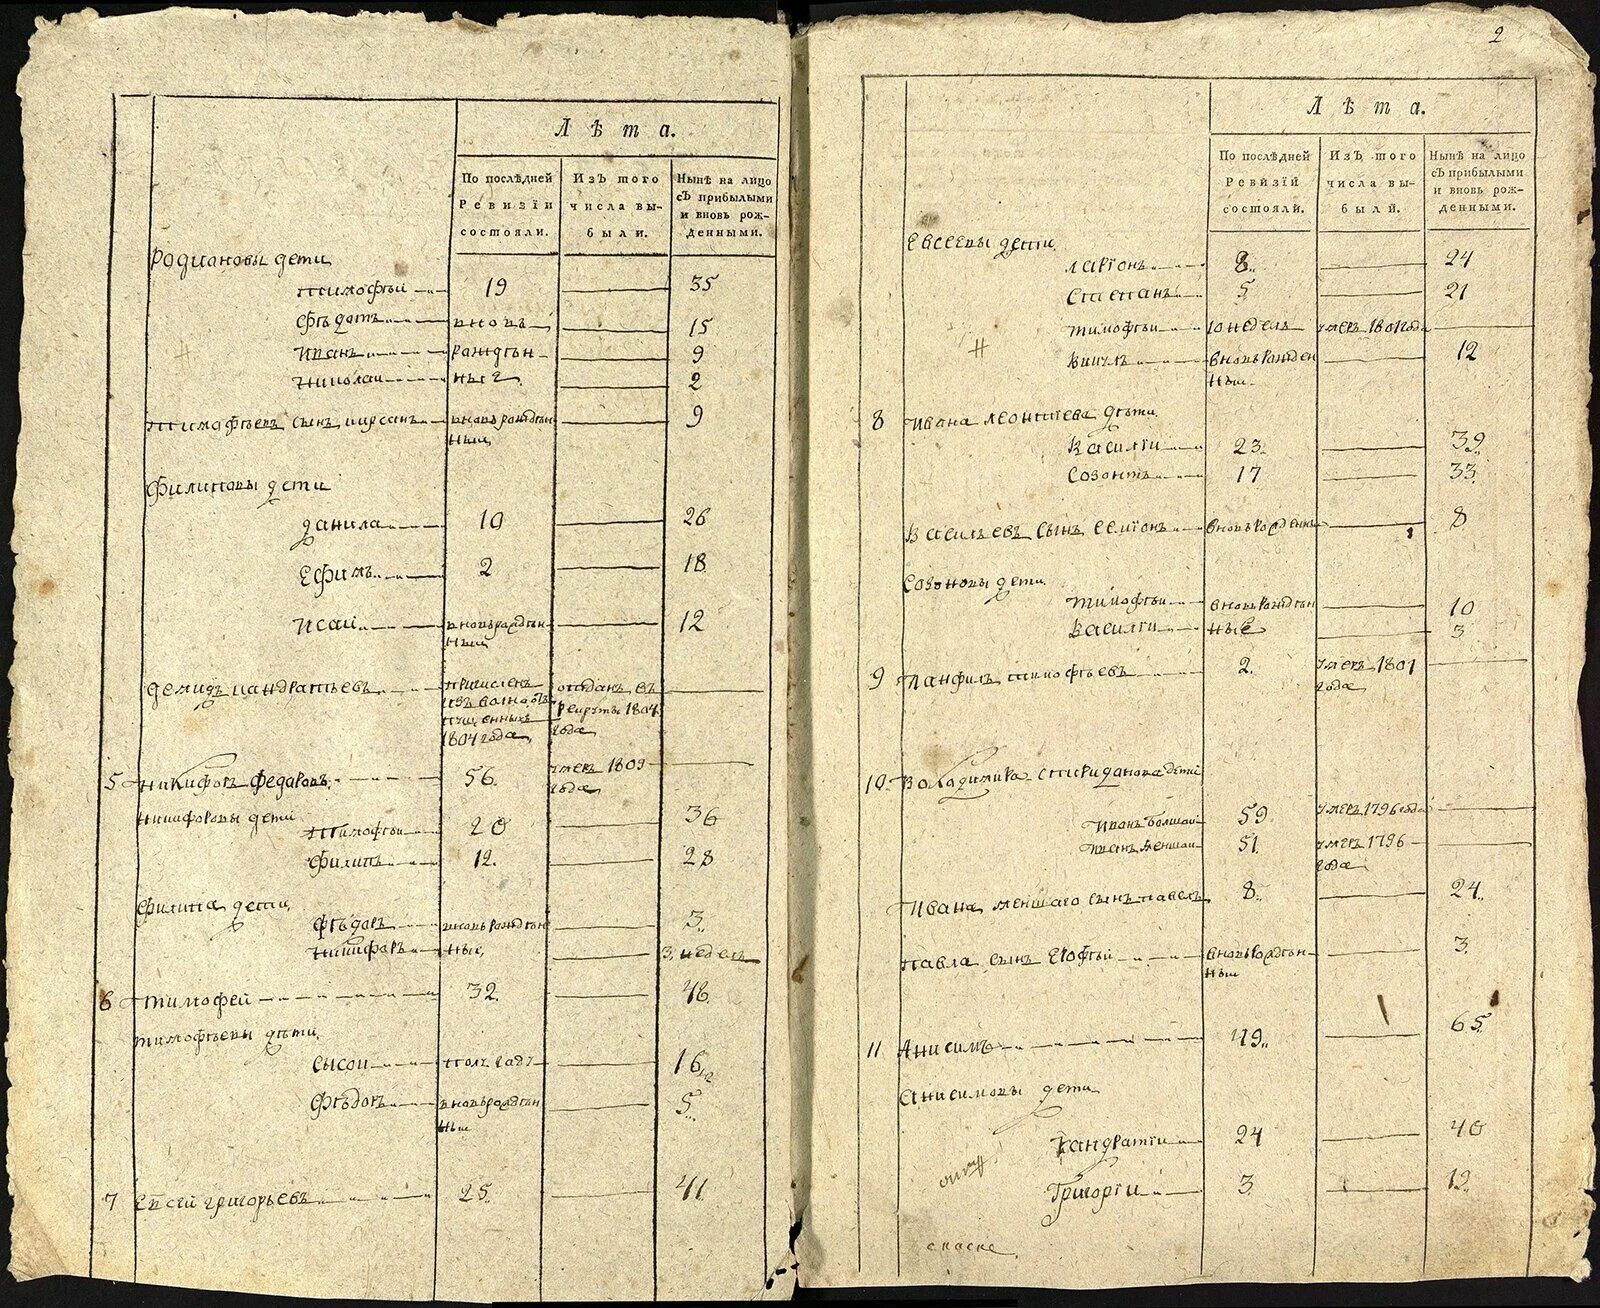 Лѣта.
По послѣдней Ревизїи состояли.
Изъ того числа выбыли.
Нынѣ на лицо съ прибылыми и вновь рожденными.
Родионовы дети
тимофѣи 19 35
фѣдотъ вновь 15
иванъ раждѣн- 9
николаи ные 2
тимофѣевъ сынъ вновь раждѣн 9
ныи
филиповы дети
данила 10 26
Ефимъ 2 18
исаи вновьраждѣн 12
ныи
демидъ кандратьевъ причисленъ отданъ въ
рекруты 1804
1804 года года
5 никифоръ федаровъ 56. умеръ 1809
года
никифоровы дети
тимофѣи 20 36
филипъ 12. 28
филипа дети
фѣдоръ вновьраждѣн 3.
никифоръ ные 3 неделъ
6 тимофей 32. 48.
тимофѣевы дѣти
сысои полъ года 16
фѣдоръ вновьраждѣн 5
ныи
7 Евсїй григорьевъ 25. 41
2
Лѣта.
По послѣдней Ревизїй состояли.
Изъ того числа выбылй.
Нынѣ на лицо съ прибылыми и вновь рожденными.
Евсеевы дети
ларїонъ 8. 24
степанъ 5 21
тимофѣи 10 недель умеръ 1801 года
вновьражден 12
ныи
8 Ивана леонтїева дѣти
Василїи 23. 39
созонтъ 17 33
Васильевъ сынъ семїонъ вновьражденъ 8
Созоновы дети
тимофѣи вновьраждѣн 10
василїи ные 3
9 Панфилъ тимофѣевъ 2. умеръ 1801
года
10. Володимира спиридонова дети
иванъ болшаи 59 умеръ 1796 года
иванъ меншаи 51. умеръ 1796
года
Ивана меншаго сынъ павелъ 8. 24
павла сынъ вновьраждѣн 3
ныи
11 Анисимъ 49. 65
Анисимовы дети
кандратїи 24 40
григорїи 3 19